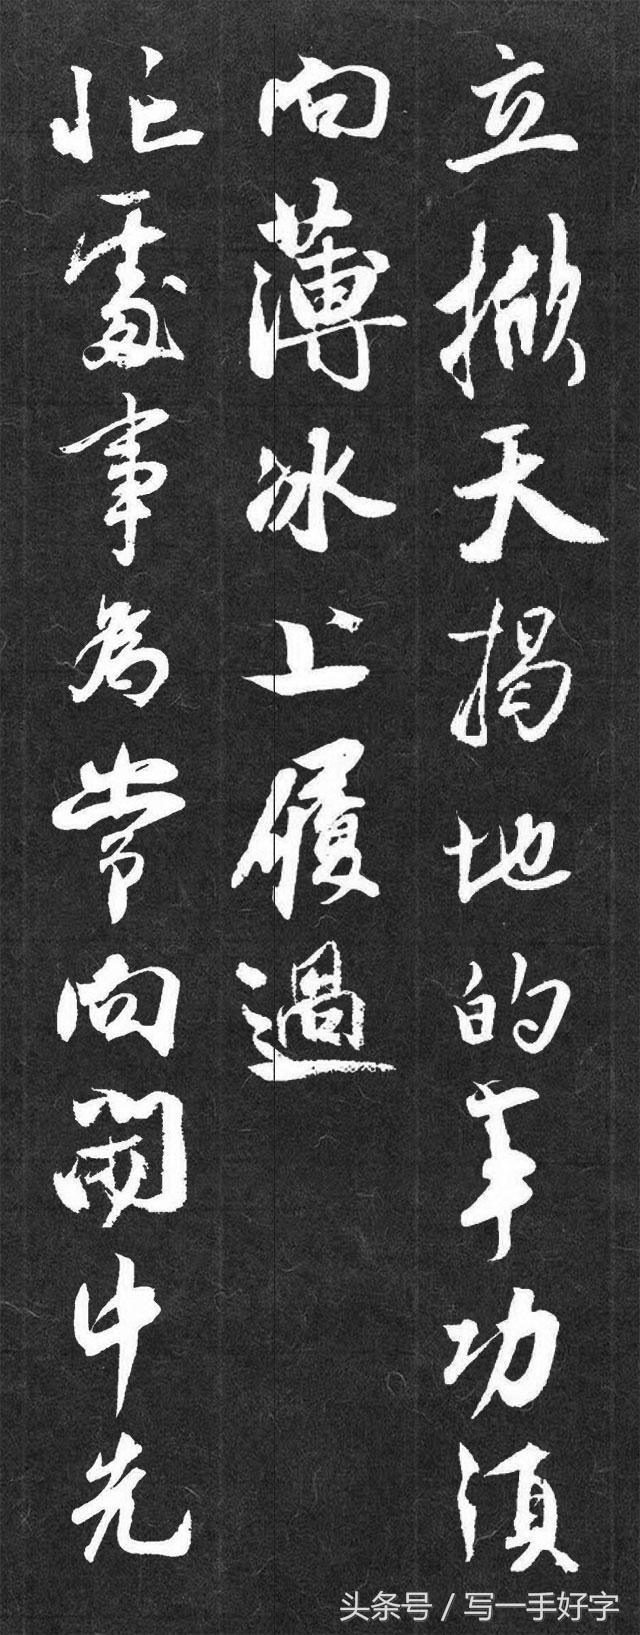 立掀天揭地的事功須
向薄冰上履過
忙處事為常向閒中先
头条号 / 写一手好字